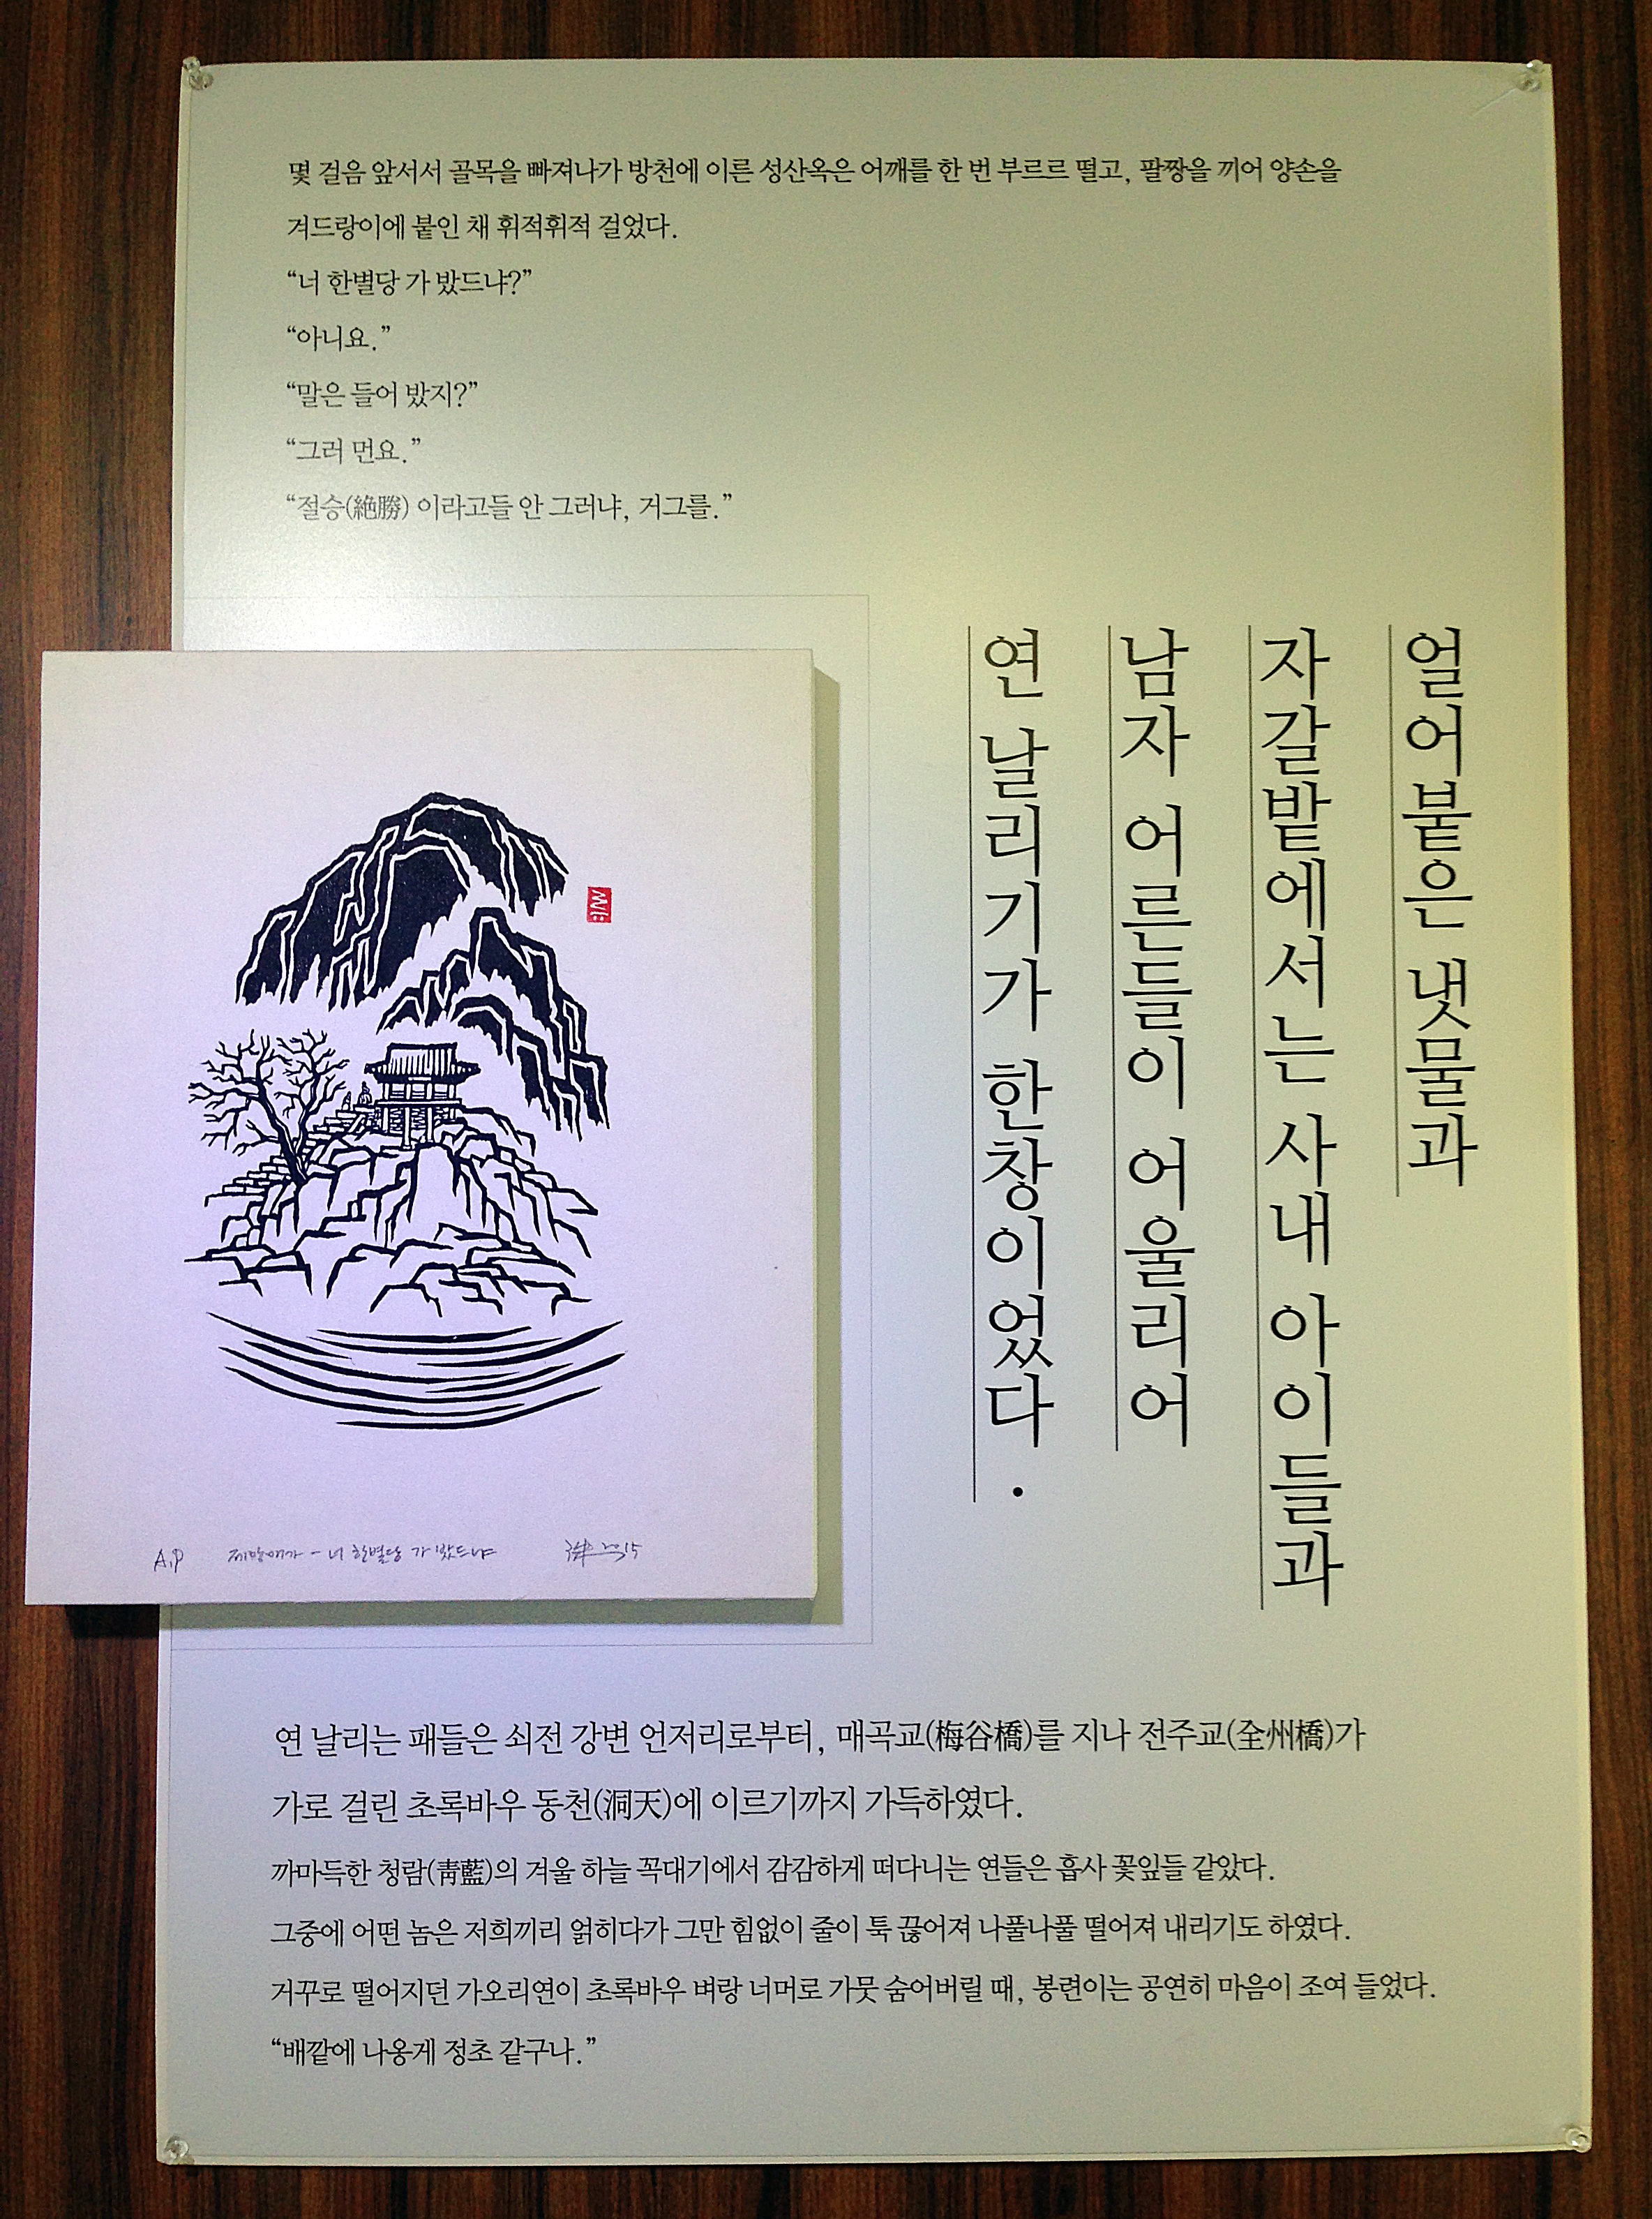 몇 걸음 앞서서 골목을 빠져나가 방천에 이른 성산옥은 어깨를 한 번 부르르 떨고, 팔짱을 끼어 양손을
겨드랑이에 붙인 채 휘적휘적 걸었다.
“너 한별당 가 밨드냐?”
“아니요.”
“말은 들어 밨지?”
“그러 먼요.”
“절승(絶勝) 이라고들 안 그러냐, 거그를.”
얼어붙은 냇물과
자갈밭에서는 사내 아이들과
남자 어른들이 어울리어
연 날리기가 한창이었다.
A.P 제망매가 - 너 한별당 가 밨드냐 2015
연 날리는 패들은 쇠전 강변 언저리로부터, 매곡교(梅谷橋)를 지나 전주교(全州橋)가
가로 걸린 초록바우 동천(洞天)에 이르기까지 가득하였다.
까마득한 청람(靑藍)의 겨울 하늘 꼭대기에서 감감하게 떠다니는 연들은 흡사 꽃잎들 같았다.
그중에 어떤 놈은 저희끼리 얽히다가 그만 힘없이 줄이 툭 끊어져 나풀나풀 떨어져 내리기도 하였다.
거꾸로 떨어지던 가오리연이 초록바우 벼랑 너머로 가뭇 숨어버릴 때, 봉련이는 공연히 마음이 조여 들었다.
“배깥에 나옹게 정초 같구나.”